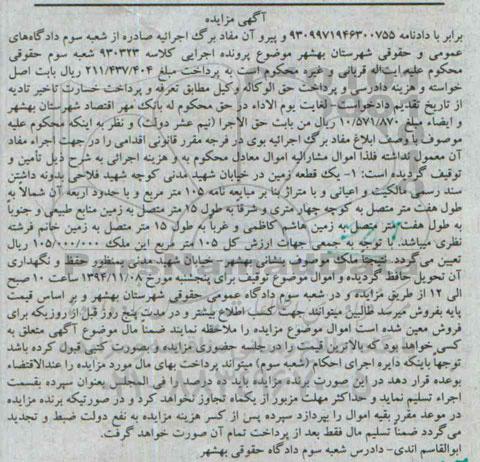 آگهی مزایده
برابر با دادنامه ۹۳۰۹۹۷۱۹۴۶۳۰۰۷۵۵ و پیرو آن مفاد برگ اجرائیه صادره از شعبه سوم دادگاه‌های
عمومی و حقوقی شهرستان بهشهر موضوع پرونده اجرایی کلاسه ۹۳۰۳۲۳ شعبه سوم حقوقی
محکوم علیه ایتاله قربانی و غیره محکوم است به پرداخت مبلغ ۲۱۱/۴۳۷/۴۰۴ ریال بابت اصل
خواسته و هزینه دادرسی و پرداخت حق الوکاله وکیل مطابق تعرفه و پرداخت خسارت تاخیر تادیه
از تاریخ تقدیم دادخواست لغایت یوم الاداء در حق محکوم له بانک مهر اقتصاد شهرستان بهشهر
و ایضاء مبلغ ۱۰/۵۷۱/۸۷۰ ریال من بابت حق الاجرا (نیم عشر دولت) و نظر به اینکه محکوم علیه
موصوف با وصف ابلاغ مفاد برگ اجرائیه بوی در فرجه مقرر قانونی اقدامی را در جهت اجراء مفاد
آن معمول نداشته فلذا اموال مشارالیه اموال معادل محکوم به و هزینه اجرائی به شرح ذیل تأمین و
توقیف گردیده است: ۱- یک قطعه زمین در خیابان شهید مدنی کوچه شهید فلاحی بدونه داشتن
سند رسمی مالکیت و اعیانی و با متراژ بنا بر مبایعه نامه ۱۰۵ متر مربع و با حدود اربعه آن شمالاً به
طول هفت متر متصل به کوچه چهار متری و شرقا به طول ۱۵ متر متصل به زمین منابع طبیعی و جنوباً
به طول هفت متر متصل به زمین هاشم کاظمی و غربا به طول ۱۵ متر متصل به زمین خانم فرشته
نظری میباشد. با توجه به جمعی جهات ارزش کل ۱۰۵ متر مربع این ملک ۱۰۵/۰۰۰/۰۰۰ ریال
تعیین می‌گردد. نتیجتا ملک موصوف بنشانی بهشهر - خیابان شهید مدنی بمنظور حفظ و نگهداری
آن تحویل حافظ گردیده و اموال موضوع توقیف برای پنجشنبه مورخ ۱۳۹۴/۱۱/۰۸ ساعت ۱۰ صبح
الی ۱۲ از طریق مزایده و در شعبه سوم دادگاه عمومی حقوقی شهرستان بهشهر و بر اساس قیمت
پایه بفروش میرسد طالبین میتوانند جهت کسب اطلاع بیشتر و در مدت پنج روز قبل از روزیکه برای
فروش معین شده است اموال موضوع مزایده را ملاحظه نمایند ضمناً مال موضوع آگهی متعلق به
کسی خواهد بود که بالاترین قیمت را در جلسه حضوری مزایده و بصورت کتبی قبول کرده باشد
توجها باینکه دایره اجرای احکام (شعبه سوم) میتواند پرداخت بهای مال مورد مزایده را عندالاقتضاء
بوعده قرار دهد در این صورت برنده مزایده باید ده درصد را فی المجلس بعنوان سپرده بقسمت
اجراء تسلیم نماید و حداکثر مهلت مزبور از یکماه تجاوز نخواهد کرد و در صورتیکه برنده مزایده
در موعد مقرر بقیه اموال را بپردازد سپرده پس از کسر هزینه مزایده به نفع دولت ضبط و تجدید
می‌گردد ضمناً تسلیم مال فقط بعد از پرداخت تمام آن صورت خواهد گرفت.
ابوالقاسم اندی- دادرس شعبه سوم دادگاه حقوقی بهشهر